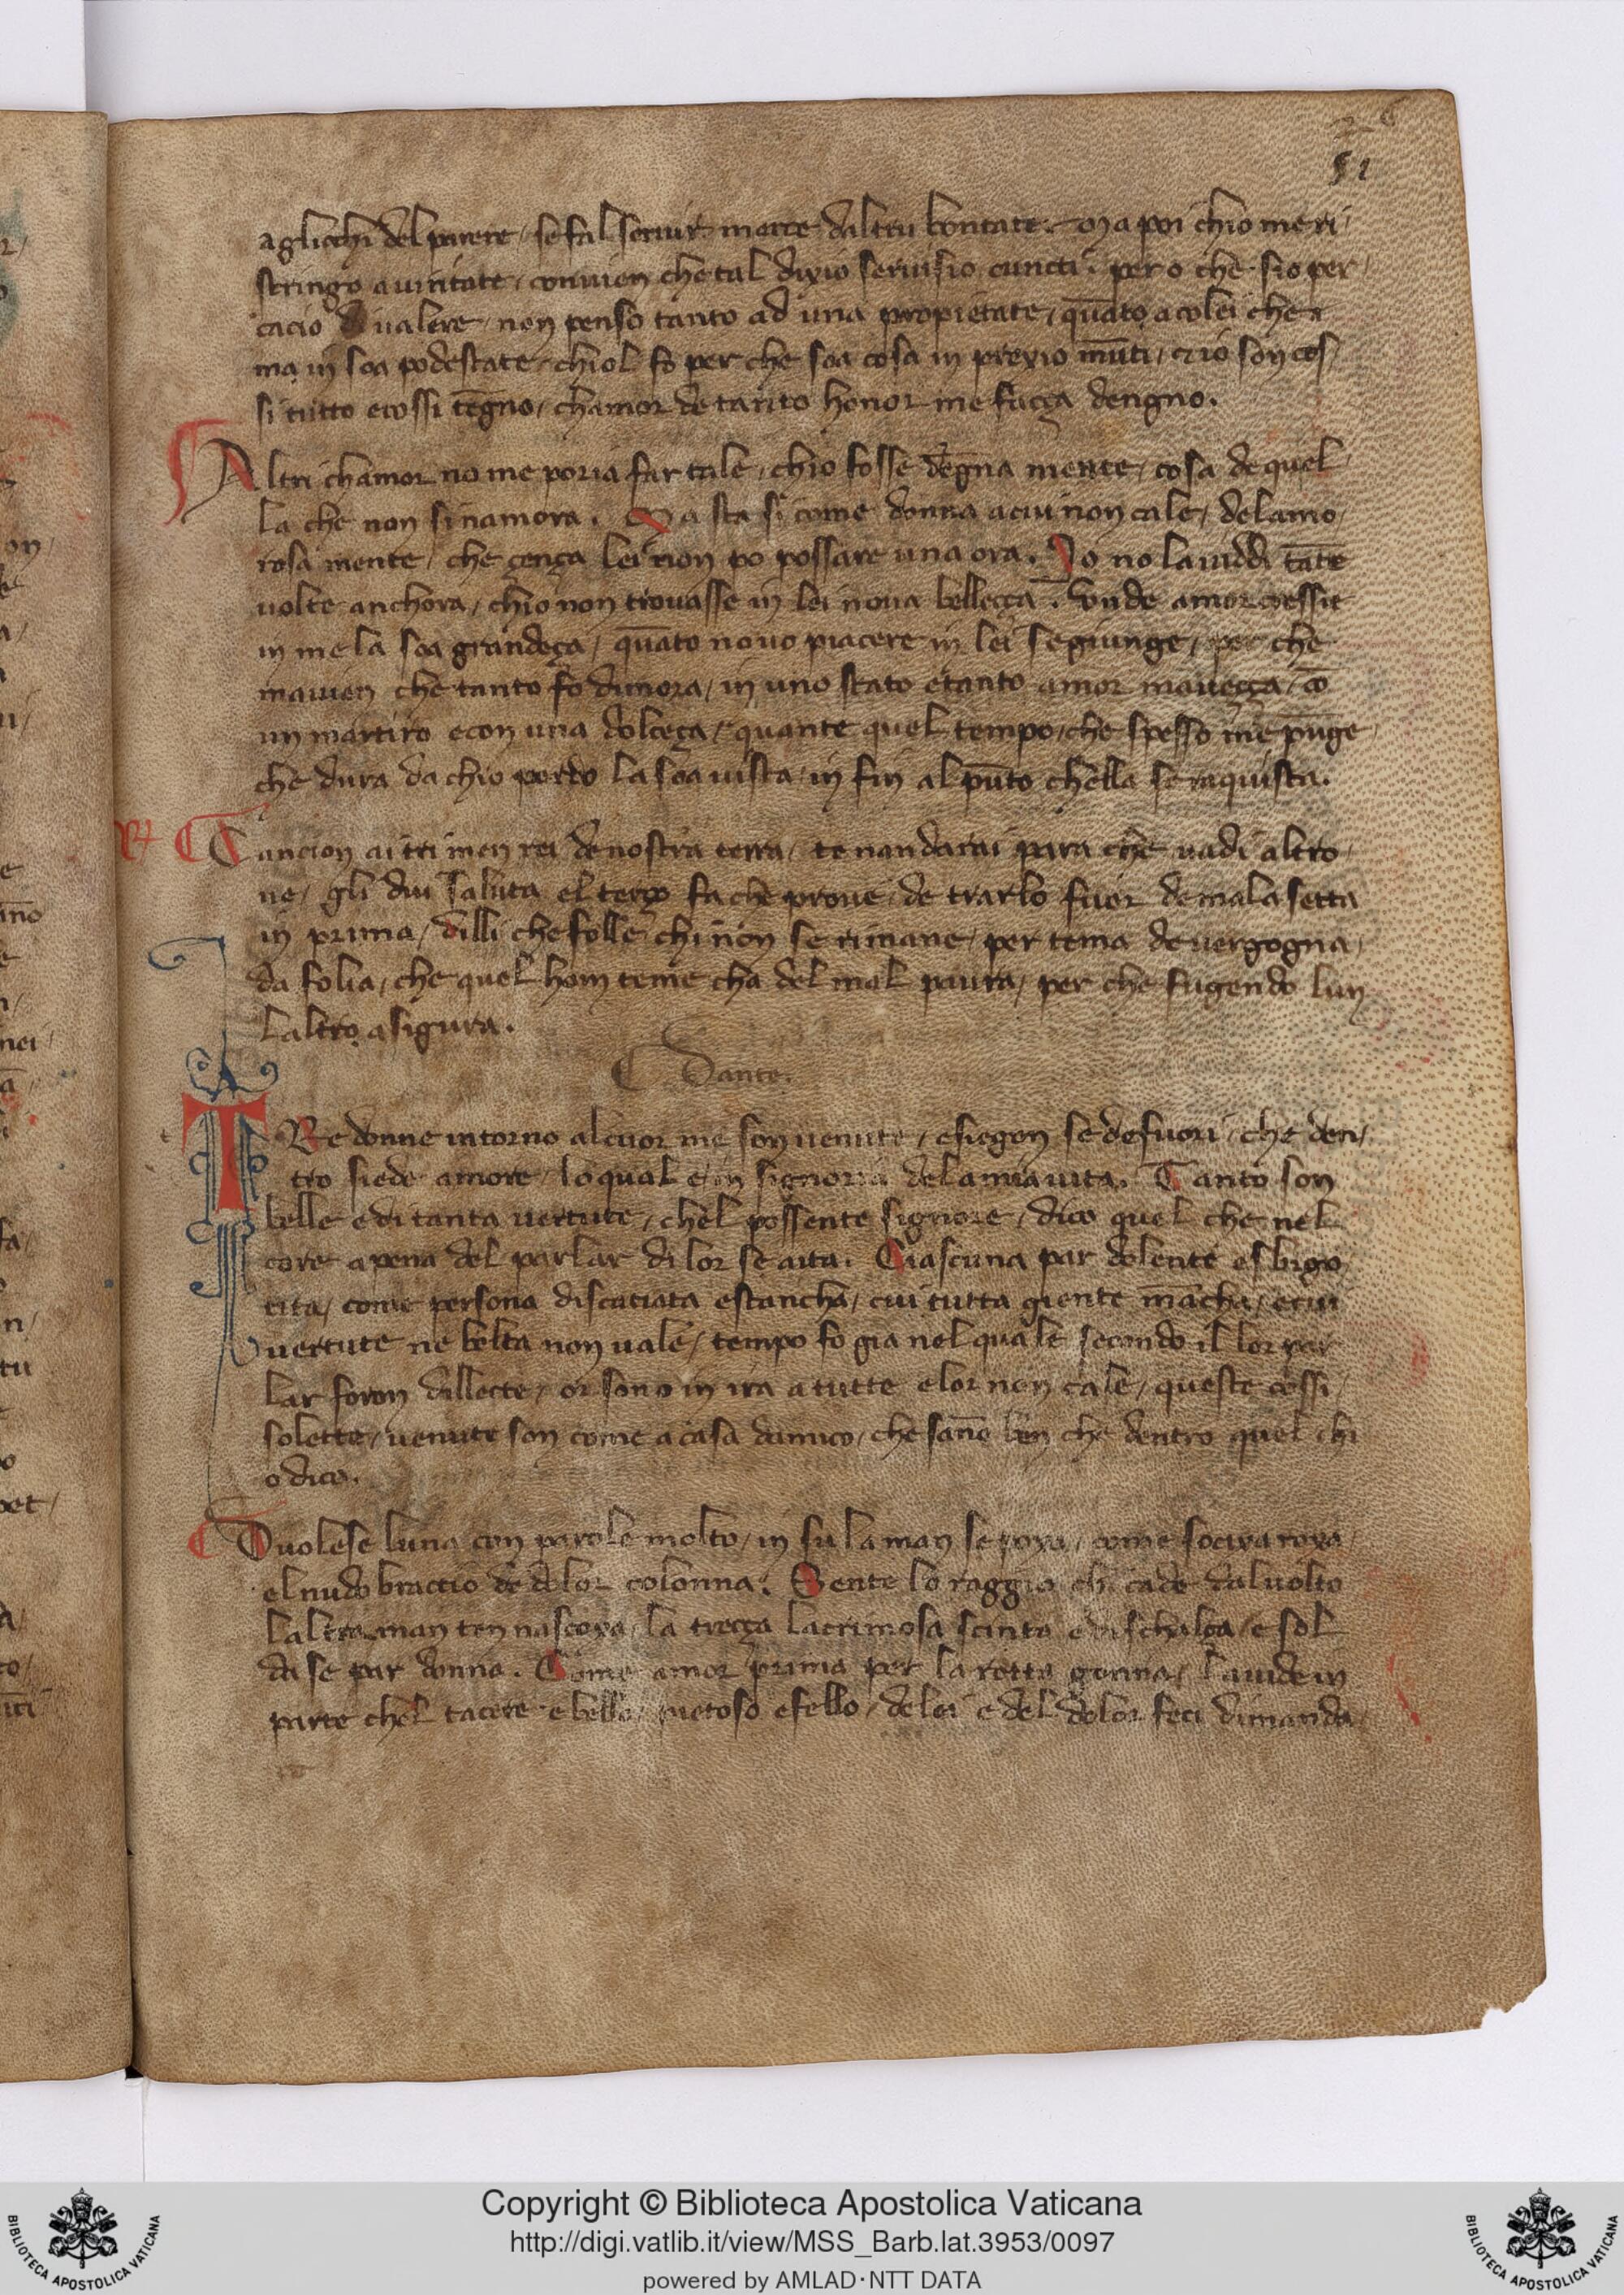 51
agliochi del piacere / se fal servir merce daltrui bontate. Ma poi chio me ri /
stringo a unitate / convien che tal dixio servisio cuncti / pero che sio per /
cacio di valere / non penso tanto ad una propietate / quāto a colei che
ma in soa podestate / chiol fo per che soa cosa in prexio mūti / et io son cos /
si tutto e cossi tēgno / chamor de tanto honor me facça dengno.
Altri chamor no me poria far tale / chio fosse degna mente / cosa de quel /
la che non sinamora. Ma sta si come donna a cui non cale / delamo /
rosa mente / che çença lei non po possare una ora. Io no la viddi tāte
volte anchora / chio non trovasse in lei nova bellecça. Onde amor cressie
in me la soa grandeça / quāto novo piacere in lei se giunge / per che
maiuen che tanto fo dimora / in uno stato e tanto amor mavecça / cō
un martiro e con una dolceça / quante quel tempo / che spesso me pūge
che dura da chio perdo la soa vista / in fin al pūto chella se raquista.
Cancion ai tri men rei de nostra terra / te nandarai prima che vadi altro
ne / gli dui saluta el terço fa che prove / de trarlo fuor de mala setta
in prima / dilli che folle chi non se rimane / per tema de vergogna /
da folia / che quel hom teme cha del mal paura / per che fugendo lun
laltro asigura.
Dante.
TRe donne intorno al cuor me son venute / e siegon se de fuori / che den /
tro siede amore / lo qual e in signoria dela mia vita. Tanto son
belle e di tanta vertute / chel possente signore / dico quel che nel
core a pena del parlar di lor se aita. Ciascuna par dolente e sbigo
tita / come persona discaciata e stancha / cui tutta giente māncha / e cui
vertute ne belta non vale / tempo fo gia nel quale secondo il lor par
lar foron dillecte / or sono in ira a tutte e lor non cale / queste cossi /
solette / venute son come a casa damico / che sāno ben che dentro quel chi
o dico.
Duolese luna con parole molto / in su la man se poxa / come socixa roxa /
el nudo braccio de dolor colonna. Sente lo raggio che cade dal volto
laltra man ten nascoxa / la trecça lacrimosa scinta e dischalça / e sol
da se par donna. Come amor prima per la rotta gonna / la vide in
parte chel tacere e bello / pietoso e fello / de lei e del dolor feci dimanda
Copyright © Biblioteca Apostolica Vaticana
http://digi.vatlib.it/view/MSS_Barb.lat.3953/0097
powered by AMLAD·NTT DATA
BIBLIOTECA APOSTOLICA VATICANA
BIBLIOTECA APOSTOLICA VATICANA